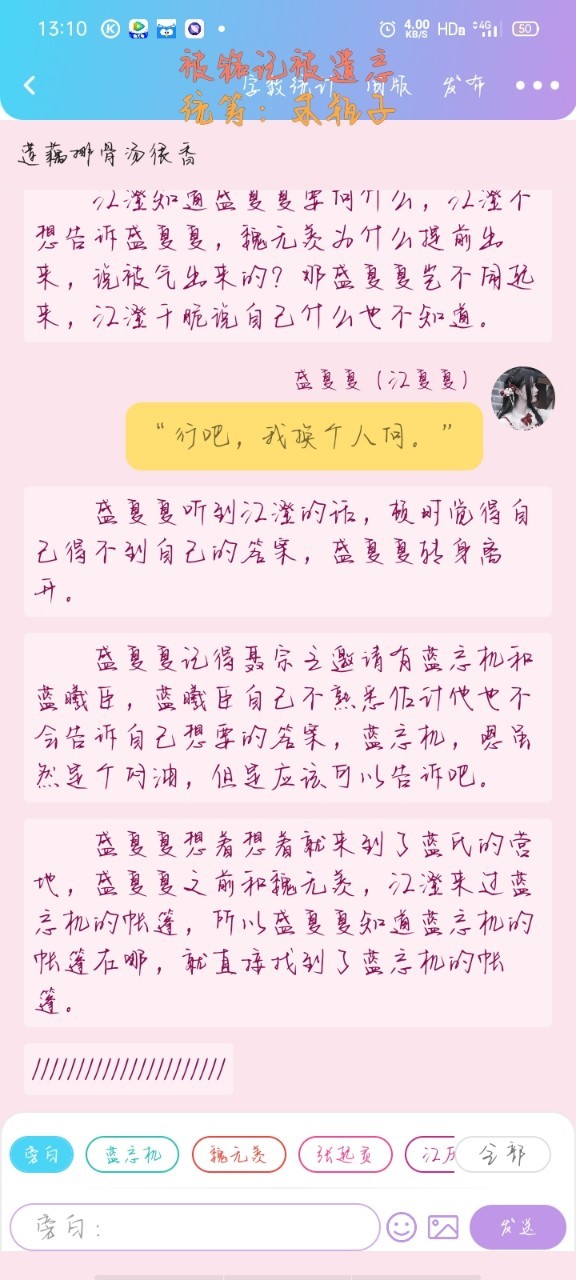 13:10
4.00
KB/S
HD
4G
50
被铭记被遗忘
字数统计
旧版
发布
统筹：木柚子
莲藕排骨汤很香
江澄知道盛夏夏要问什么，江澄不
想告诉盛夏夏，魏无羡为什么提前出
来，说被气出来的？那盛夏夏岂不闹起
来，江澄干脆说自己什么也不知道。
盛夏夏（江夏夏）
“行吧，我换个人问。”
盛夏夏听到江澄的话，顿时觉得自
己得不到自己的答案，盛夏夏转身离
开。
盛夏夏记得聂宗主邀请有蓝忘机和
蓝曦臣，蓝曦臣自己不熟悉估计他也不
会告诉自己想要的答案，蓝忘机，嗯虽
然是个闷油，但是应该可以告诉吧。
盛夏夏想着想着就来到了蓝氏的营
地，盛夏夏之前和魏无羡，江澄来过蓝
忘机的帐篷，所以盛夏夏知道蓝忘机的
帐篷在哪，就直接找到了蓝忘机的帐
篷。
//////////////////////
旁白
蓝忘机
魏无羡
张起灵
江厌
全部
旁白：
发送